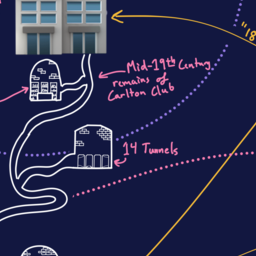 Mid-19th Century
remains of
Carlton Club
"18
14 Tunnels